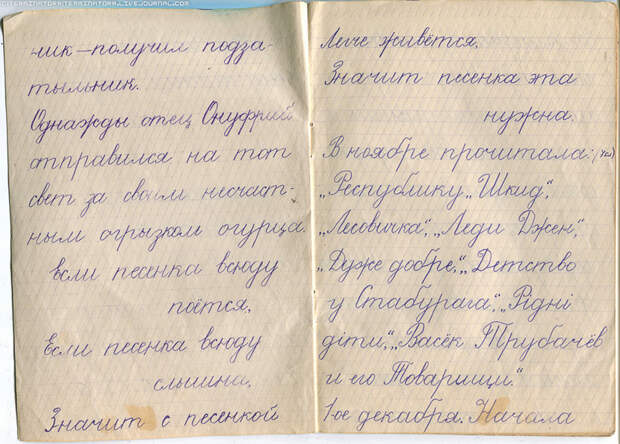 чик–получил подза-
тыльник.
Однажды отец Онуфрий
отправился на тот
свет за своим несчаст-
ным огрызком огурца.
Если песенка всюду
поётся,
Если песенка всюду
слышна,
Значит с песенкой
легче живётся.
Значит песенка эта
нужна.
В ноябре прочитала:
„Республику „Шкид",
„Лесовичка", „Леди Джен",
„Дуже добре", „Детство
у Стабурага", „Рідні
діти", „Васёк Трубачёв
и его Товарищи."
1-ое декабря. Начала